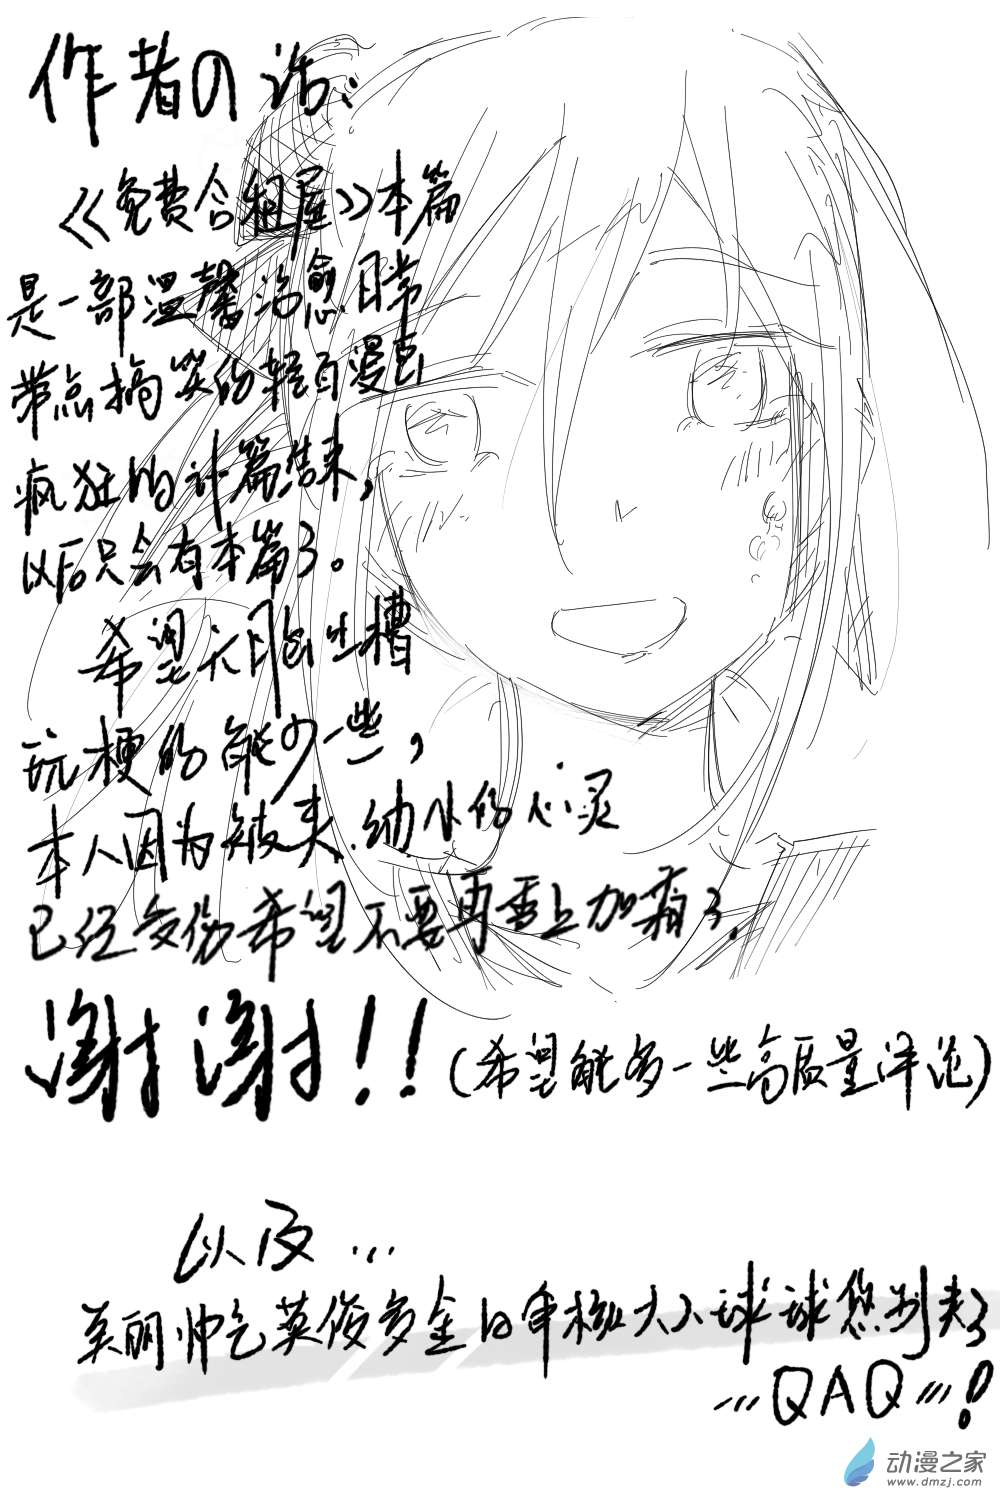 作者の话:
《免费合租屋》本篇
是一部温馨治愈日常
带点搞笑的轻百漫画
疯狂的计篇结束,
以后只会有本篇了。
希望大胆吐槽
玩梗的能少一些,
本人因为被夹.幼小的心灵
已经受伤希望不要再雪上加霜了.
谢谢!!(希望能多一些高质量评论)
以及...
美丽帅气英俊多金的审核大人球球您别夹了
...QAQ...!
动漫之家
www.dmzj.com